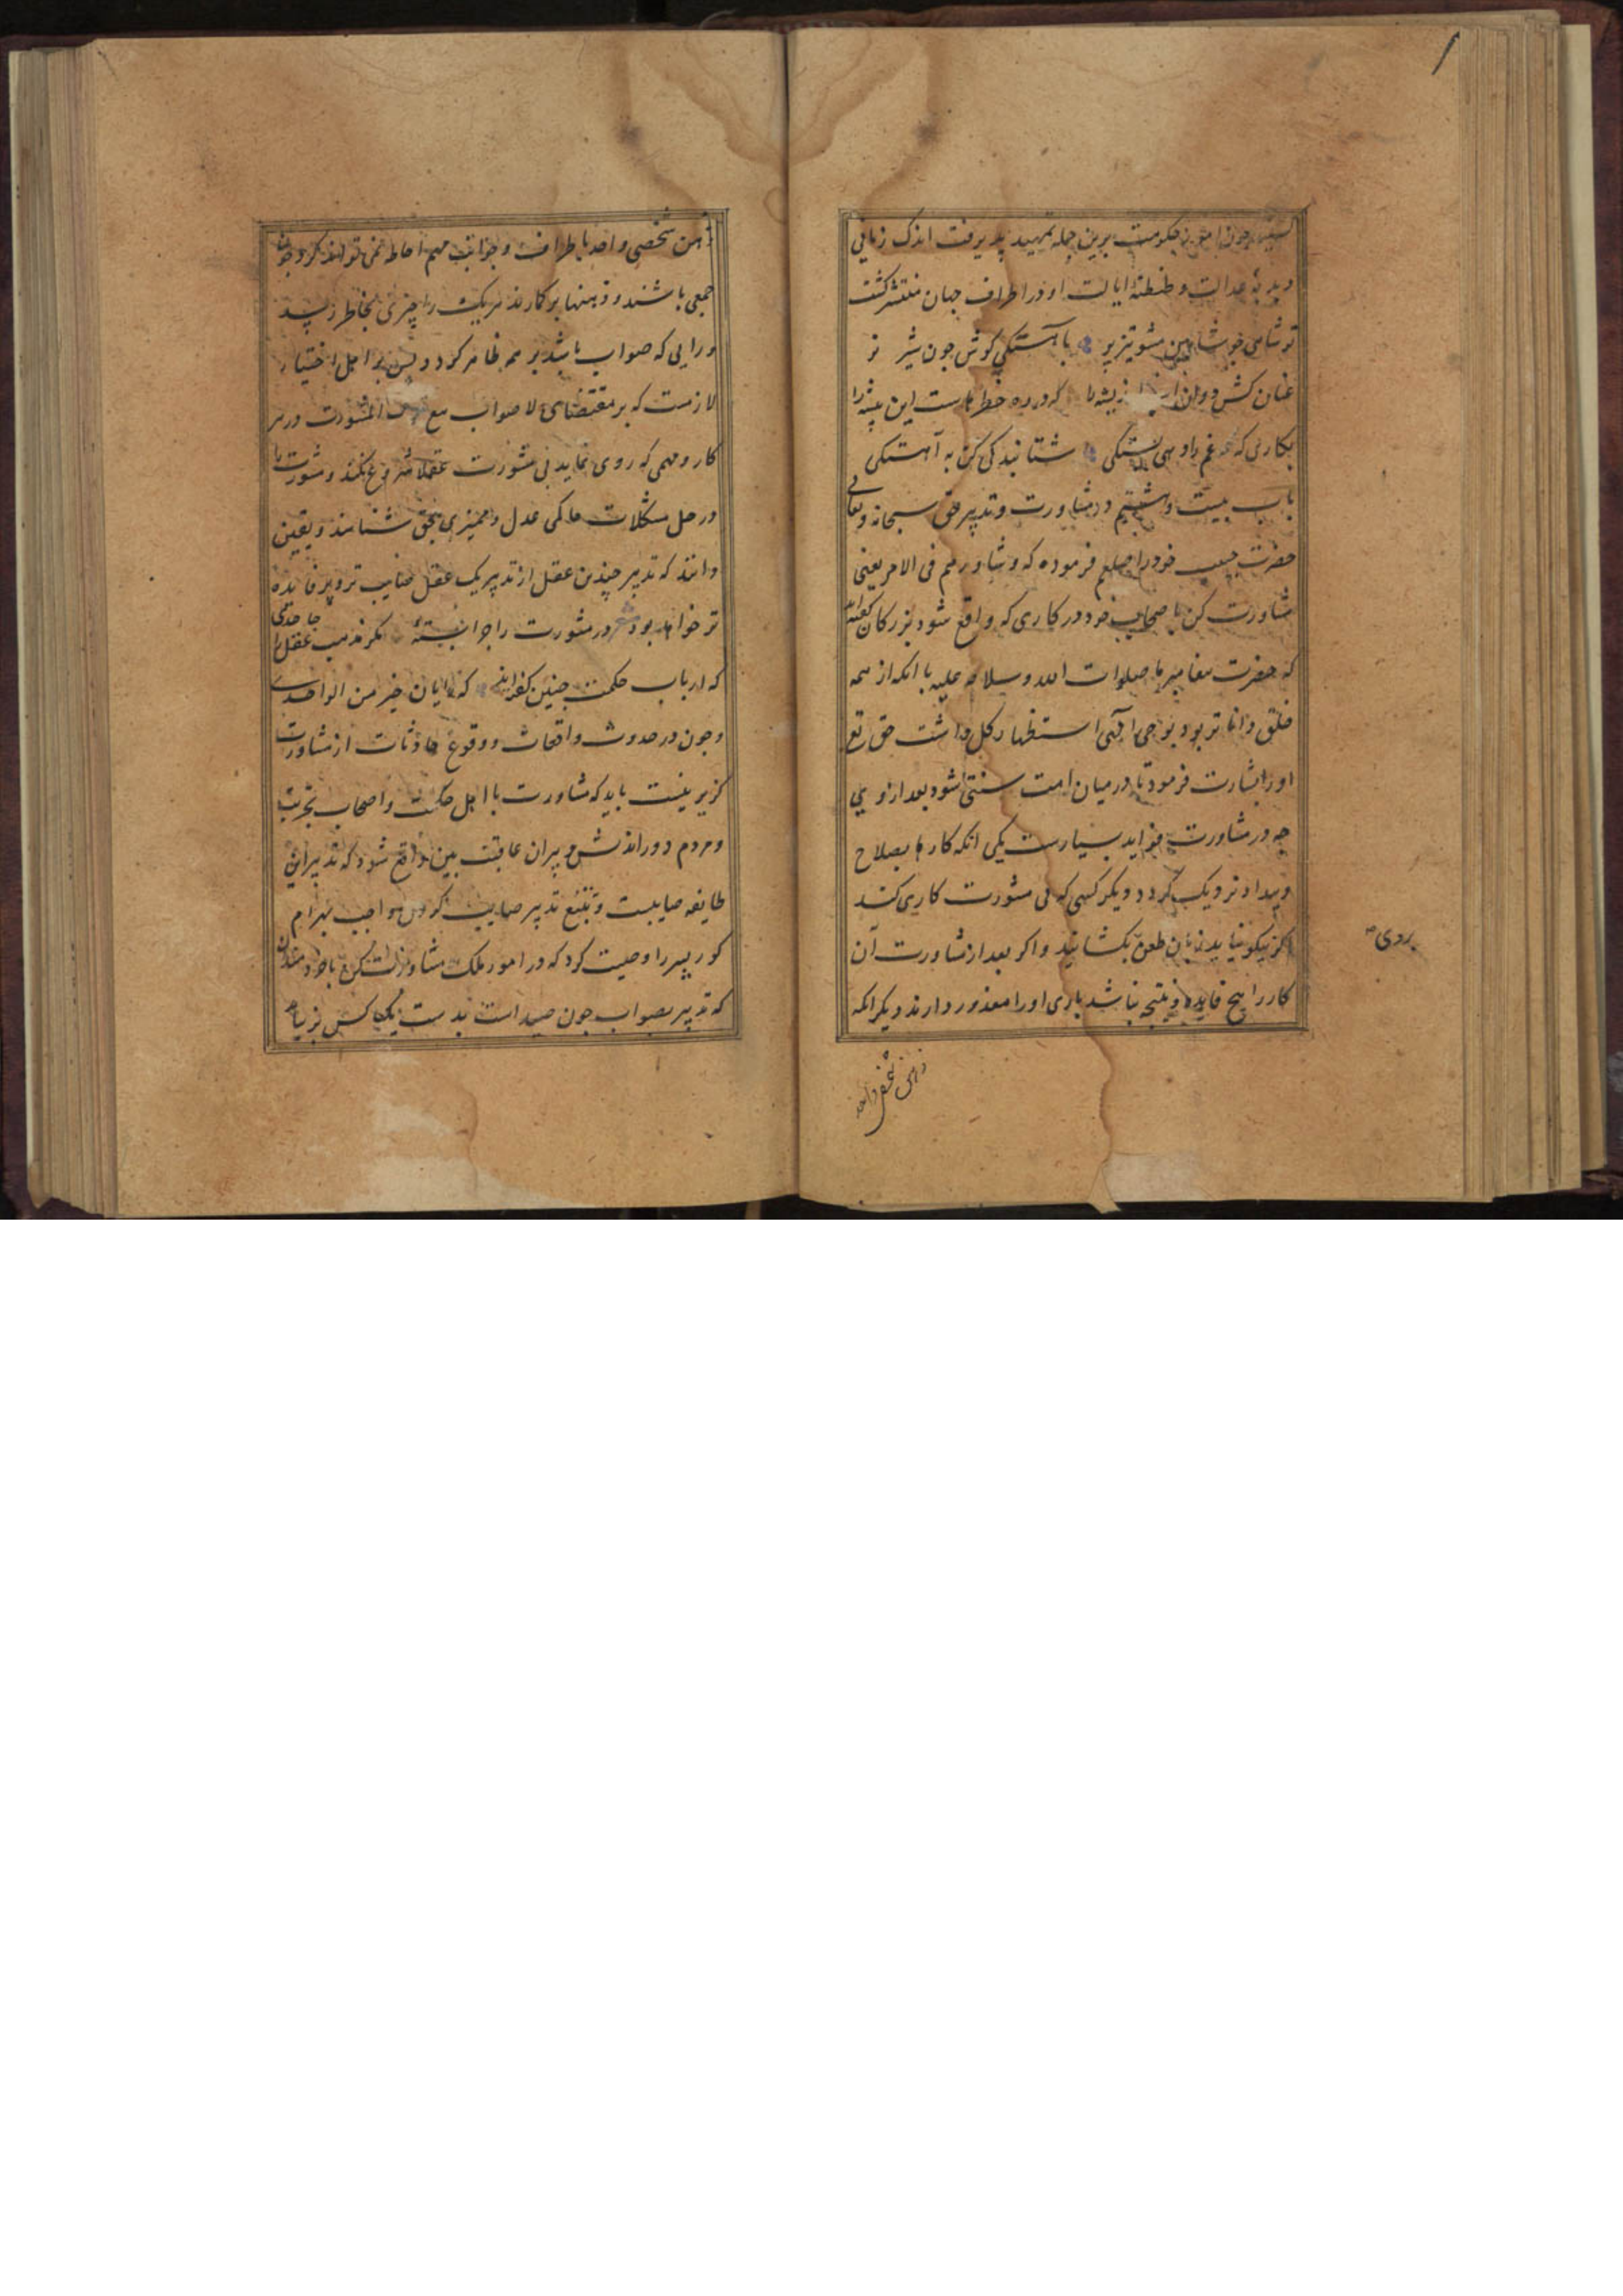 چون امور حکومت برین جمله تمهید پذیرفت اندک زمانی
دبدبهٔ عدالت و طنطنهٔ ایالت او در اطراف جهان منتشر کشت
تو شاهی جو شاهین مشو تیزپر با آهستکی کوش جون شیر نر
عنان کش دوان اسپ اندیشه را که در ره خطرهاست این پیشه را
بکاری که غم را دهی بستکی شتابندکی کن به آهستکی
باب بیست و هشتم در مشاورت و تدبیر حق سبحانه و تعالی
حضرت حبیب خود را صلعم فرموده که و شاورهم فی الامر یعنی
مشاورت کن با صحاب خود در کاری که واقع شود بزرکان کفته‌اند
که حضرت پیغامبر ما صلوات الله و سلامه علیه با انکه از همه
خلق داناتر بود و بوحی الهی استظهار کل داشت حق تع
او را بشارت فرمود تا در میان امت سنتی شود بعد از وی
جه در مشاورت فواید بسیارست یکی انکه کارها بصلاح
و سداد نزدیک کردد دیکر کسی که بی مشورت کاری کند
اکر نیکو نیاید زبان طعن بکشانید و اکر بعد از مشاورت آن
بروی
کار را هیج فایده و نتیجه نباشد باری او را معذور دارند دیکر انکه
ذهن شخصی واحد
ذهن شخصی واحد باطراف و جوانب مهم احاطه نمی تواند کرد و جون
جمعی باشند و ذهنها بر کارند هر یک را چیزی بخاطر رسد
و رایی که صواب باشد بر همه ظاهر کردد و پس بر اهل اختیار
لازمست که بر مقتضای لا صواب مع ترک المشورت در هر
کار و مهمی که روی نماید بی مشورت عقلا شروع نکند و مشورت را
در حل مشکلات حاکمی عدل و ممیزی بحق شناسند و یقین
دانند که تدبیر چندین عقل از تدبیر یک عقل صایب تر و پر فایده
تر خواهد بود شعر در مشورت را جرا بستهٔ مکر مذهب عقل را جاحدی
که ارباب حکمت جنین کفته‌اند که رایان خیر من الواحدی
و جون در حدوث واقعات و وقوع حادثات از مشاورت
کزیر نیست باید که مشاورت با اهل حکمت و اصحاب تجربت
و مردم دوراندیش و پیران عاقبت بین واقع شود که تدبیر این
طایفه صایبست و تتبع تدبیر صایب کردن واجب بهرام
کور پسر را وصیت کرد که در امور ملک مشاورت کن با خردمندان
که تدبیر بصواب جون صید است بدست یک کس نیاید